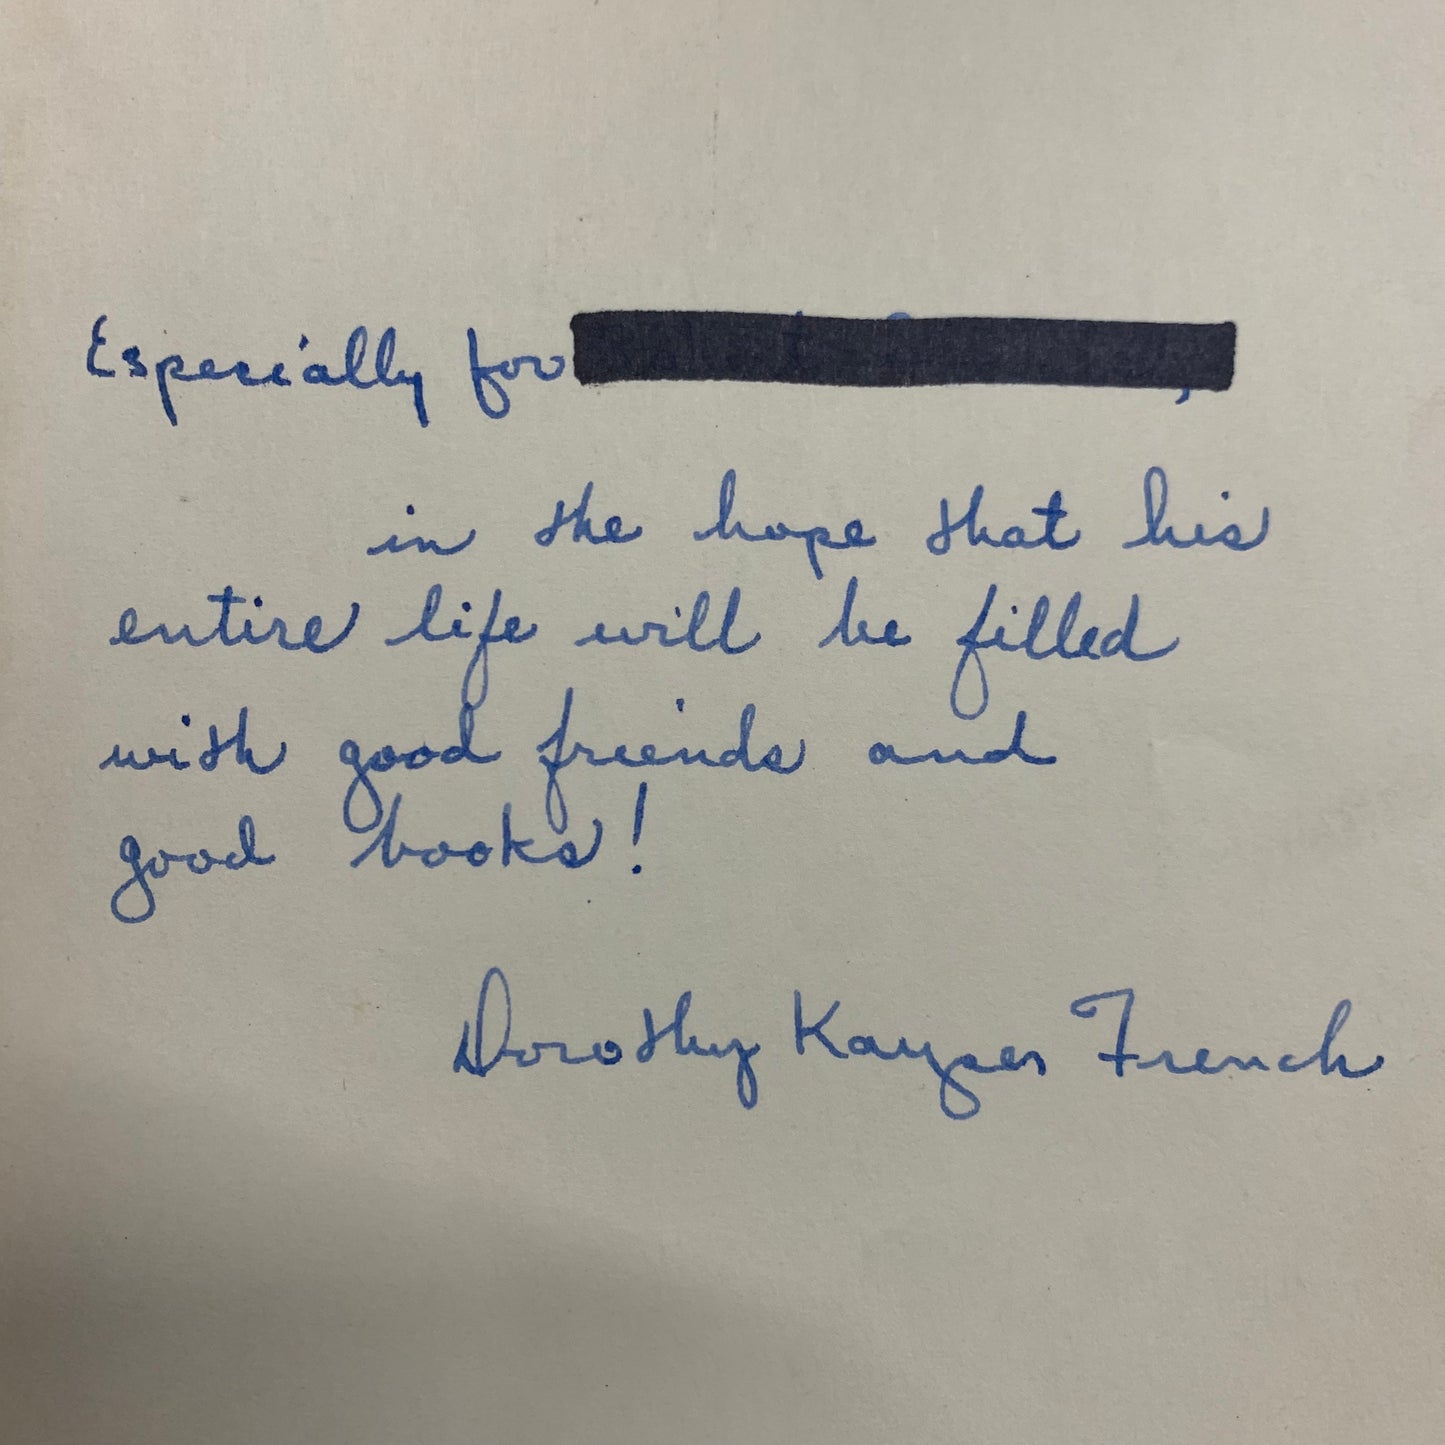 Especially for
in the hope that his
entire life will be filled
with good friends and
good books!
Dorothy Kayser French